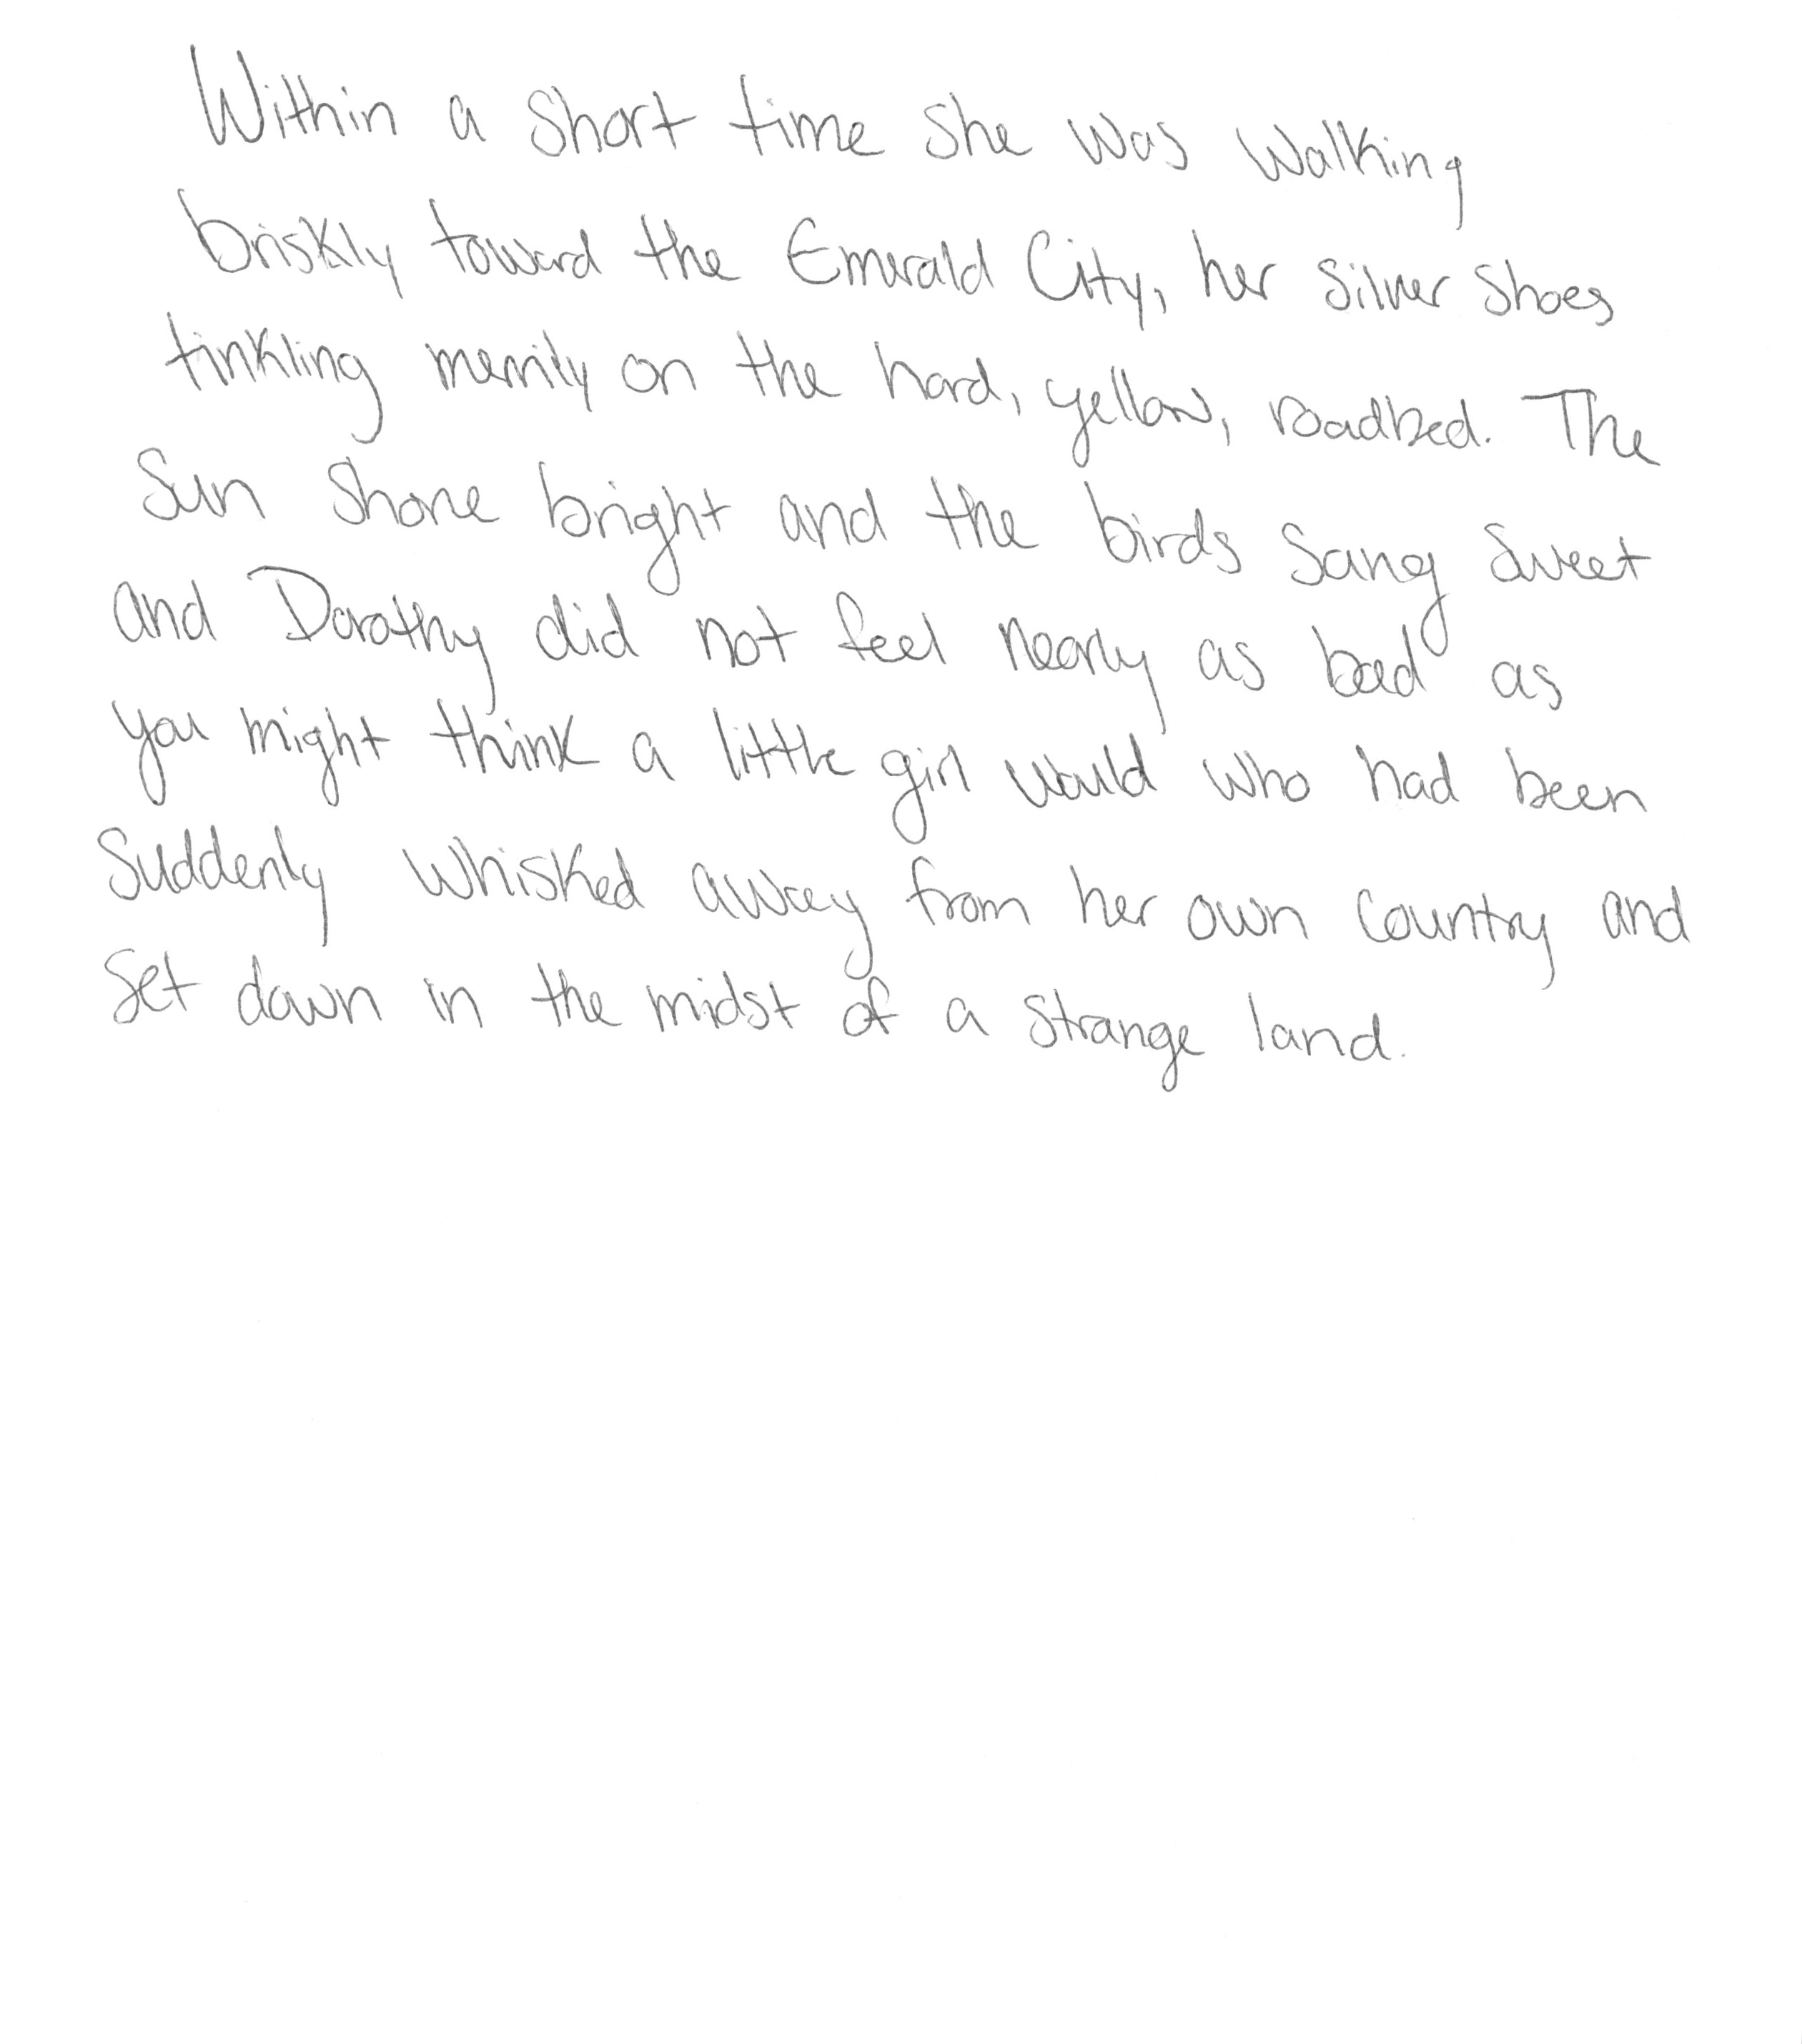 Within a short time she was walking
briskly toward the Emerald City, her silver shoes
tinkling merrily on the hard, yellow, roadbed. The
sun shone bright and the birds sang sweet
and Dorothy did not feel nearly as bad as
you might think a little girl would who had been
suddenly whisked away from her own country and
set down in the midst of a strange land.